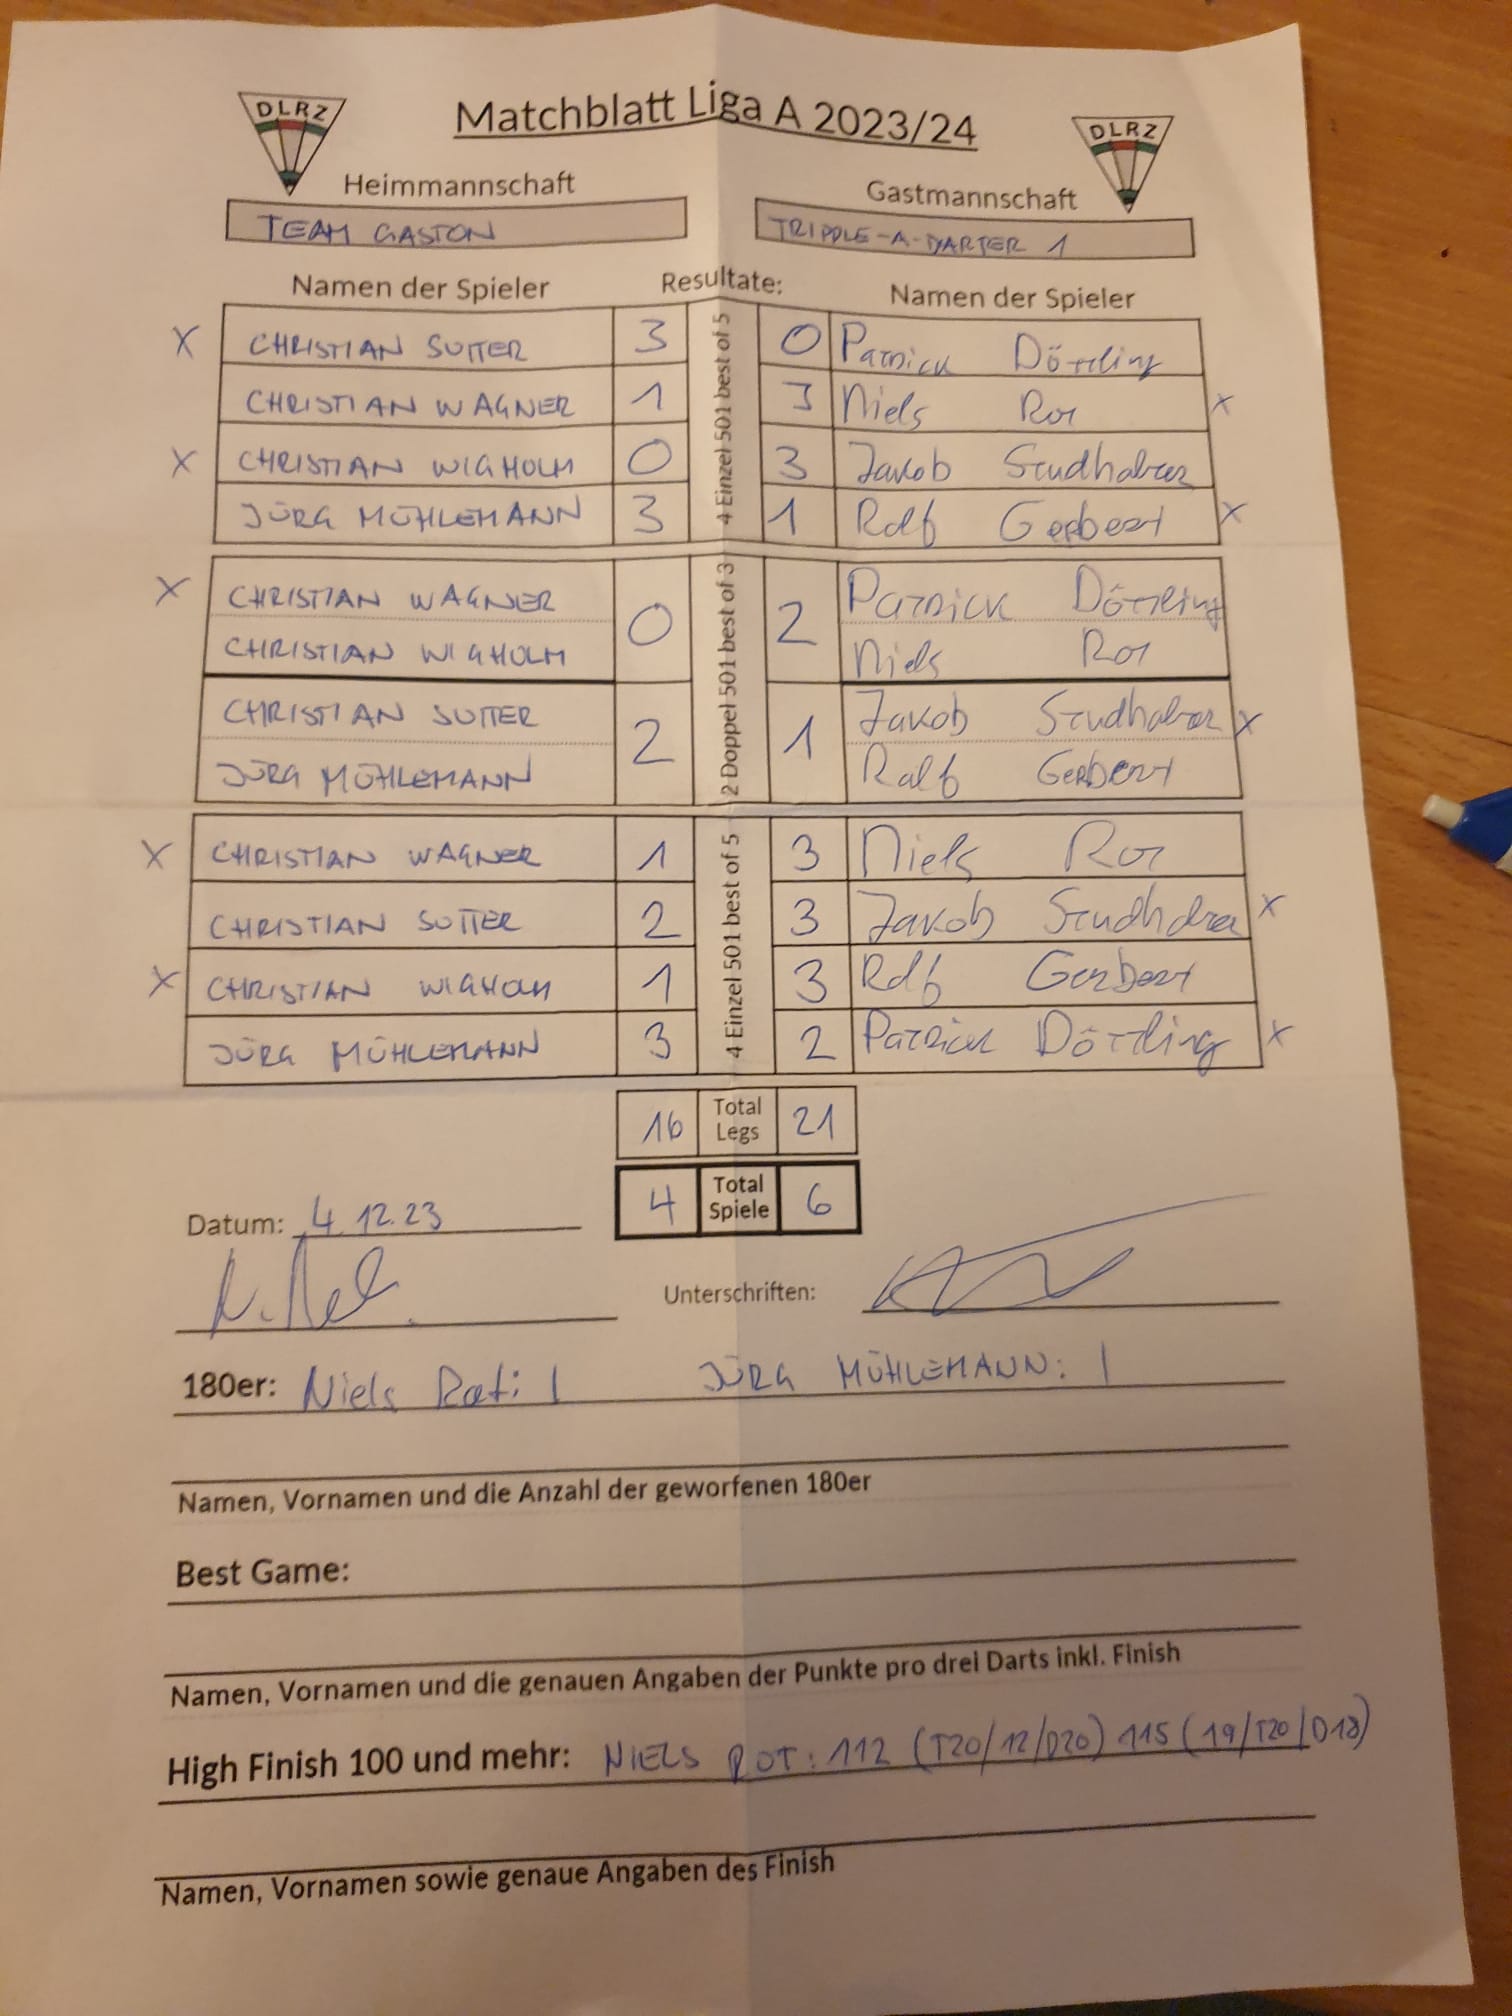 DLRZ Matchblatt Liga A 2023/24 DLRZ
Heimmannschaft Gastmannschaft
TEAM GASTON TRIPPLE-A-DARTER 1
Namen der Spieler Resultate: Namen der Spieler
X CHRISTIAN SUTTER 3 0 Patrick Döttling
CHRISTIAN WAGNER 1 3 Niels Rot X
X CHRISTIAN WIGHOLM 0 3 Jakob Studhalter
JÜRG MÜHLEMANN 3 1 Ralf Gerbert X
4 Einzel 501 best of 5
X CHRISTIAN WAGNER 0 2 Patrick Döttling
CHRISTIAN WIGHOLM Niels Rot
CHRISTIAN SUTTER 2 1 Jakob Studhalter X
JÜRG MÜHLEMANN Ralf Gerbert
2 Doppel 501 best of 3
X CHRISTIAN WAGNER 1 3 Niels Rot
CHRISTIAN SUTTER 2 3 Jakob Studhalter X
X CHRISTIAN WIGHOLM 1 3 Ralf Gerbert
JÜRG MÜHLEMANN 3 2 Patrick Döttling X
4 Einzel 501 best of 5
16 Total Legs 21
4 Total Spiele 6
Datum: 4.12.23
Unterschriften:
180er: Niels Rot: 1 JÜRG MÜHLEMANN: 1
Namen, Vornamen und die Anzahl der geworfenen 180er
Best Game:
Namen, Vornamen und die genauen Angaben der Punkte pro drei Darts inkl. Finish
High Finish 100 und mehr: NIELS ROT: 112 (T20/12/D20) 115 (19/T20/D18)
Namen, Vornamen sowie genaue Angaben des Finish